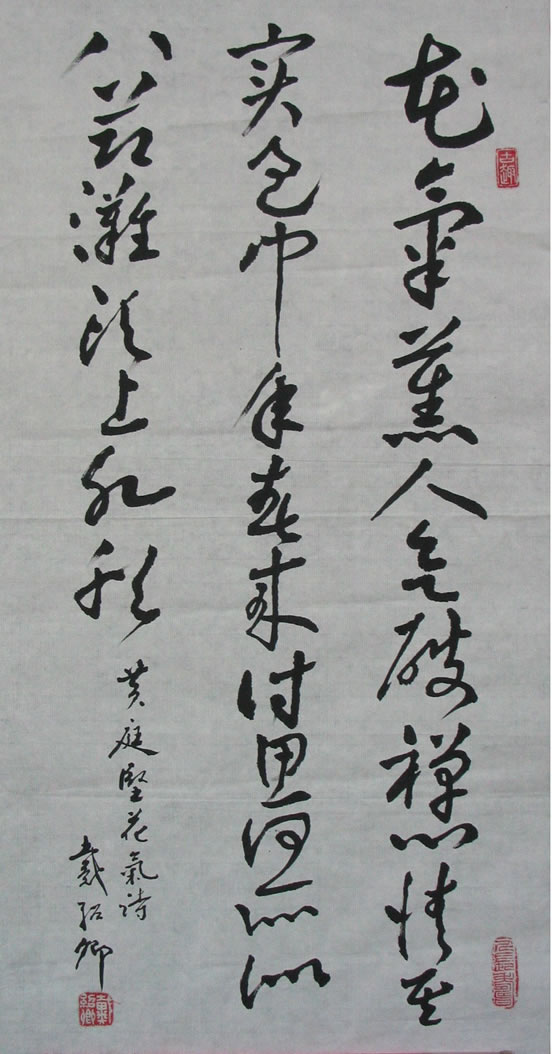 花氣薰人欲破禪心情其
实過中年春來詩思何所似
八節灘頭上水船
黄庭堅花氣詩
戴紹卿